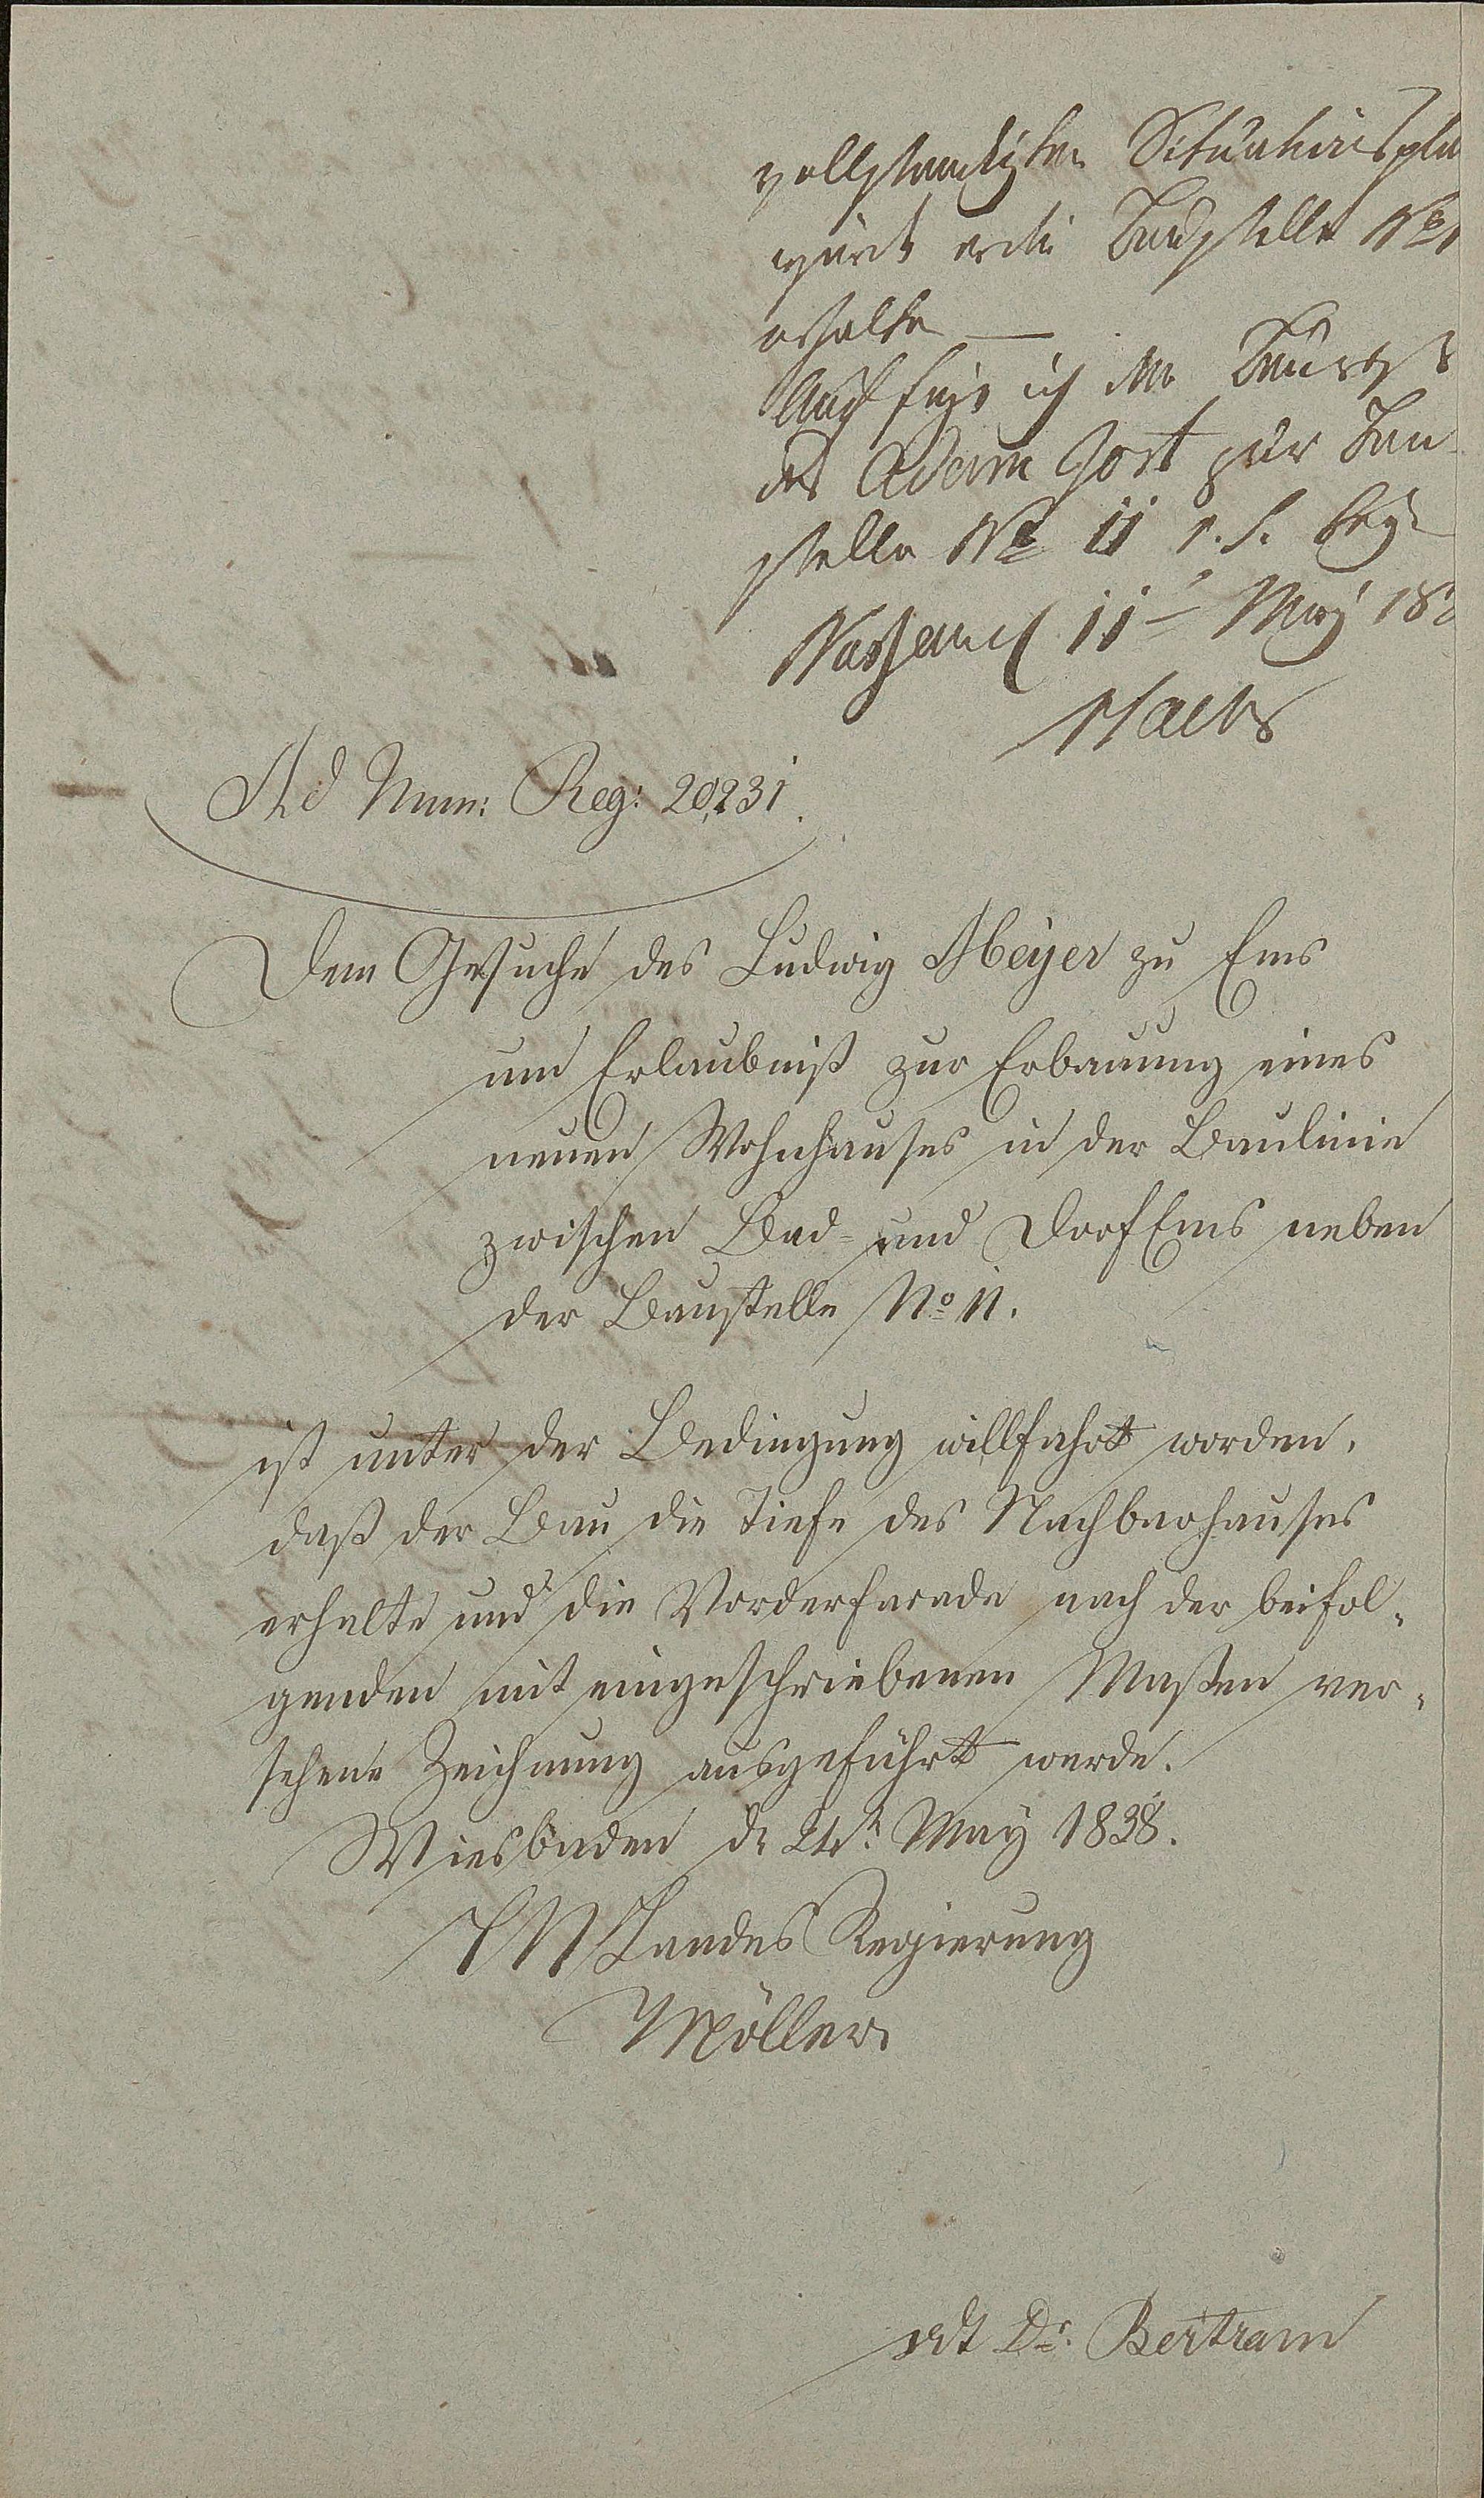 vollständigen Situationspla
wird erdie Baustelle No
erhalte —
Auch füge ich den
des Adam Jost zur Bau-
stelle No 11 r. s. bey
Nassau 11t May 18
Ad Num: Reg: 20,231.
Dem Gesuche des Ludwig Meyer zu Ems
um Erlaubniß zur Erbauung eines
neuen Wohnhauses in der Baulinie
zwischen Bad- und Dorf Ems neben
der Baustelle No 11.
ist unter der Bedingung willfahrt worden,
daß der Bau die Tiefe des Nachbarhauses
erhalte und die Vorderfacade nach der beifol-
genden mit eingeschriebenen Maßen ver-
sehene Zeichnung ausgeführt werde.
Wiesbaden d. 24t. May 1838.
H N Landes Regierung
Möller
vdt Dr. Bertram